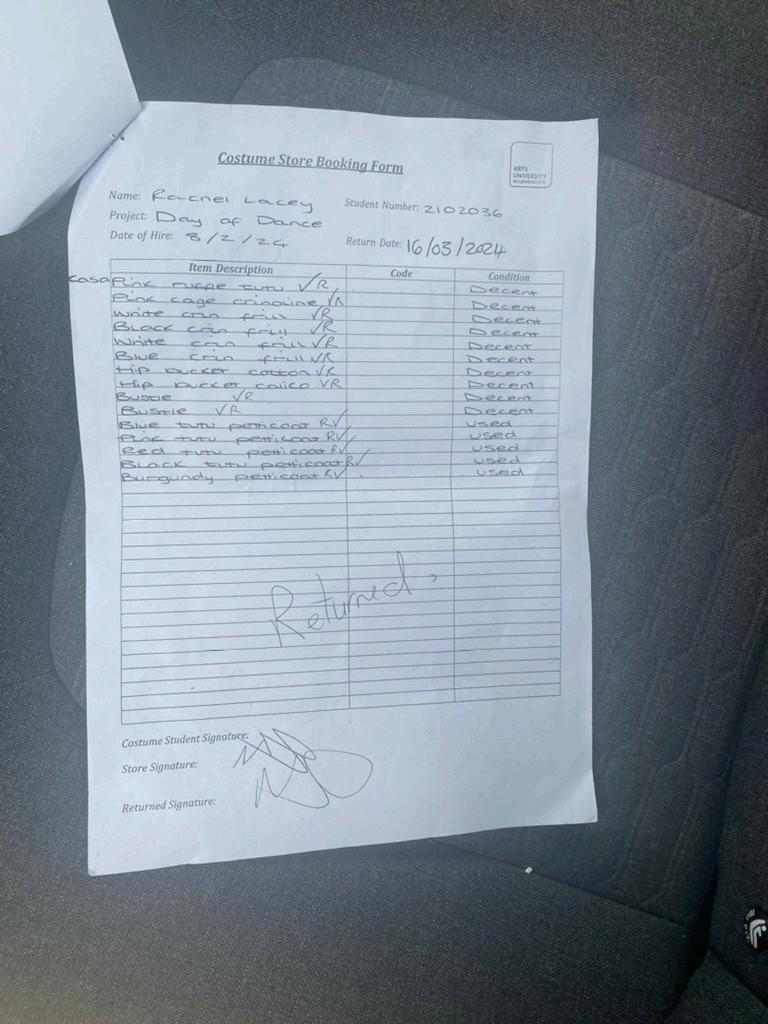 Costume Store Booking Form
ARTS
UNIVERSITY
BOURNEMOUTH
Name: Rachel Lacey
Student Number: 2102036
Project: Day of Dance
Date of Hire: 8/2/24
Return Date: 16/03/2024
Item Description Code Condition
Pink tutu √R Decent
Pink cage crinoline √R Decent
White crin frill √R Decent
Black crin frill √R Decent
White crin frill √R Decent
Blue crin frill √R Decent
Hip bucket cotton √R Decent
Hip bucket calico √R Decent
Bustle √R Decent
Bustle √R Decent
Blue tutu petticoat R√ used
Pink tutu petticoat R√ used
Red tutu petticoat R√ used
Black tutu petticoat R√ used
Burgundy petticoat R√ used
Returned
Costume Student Signature:
Store Signature:
Returned Signature: